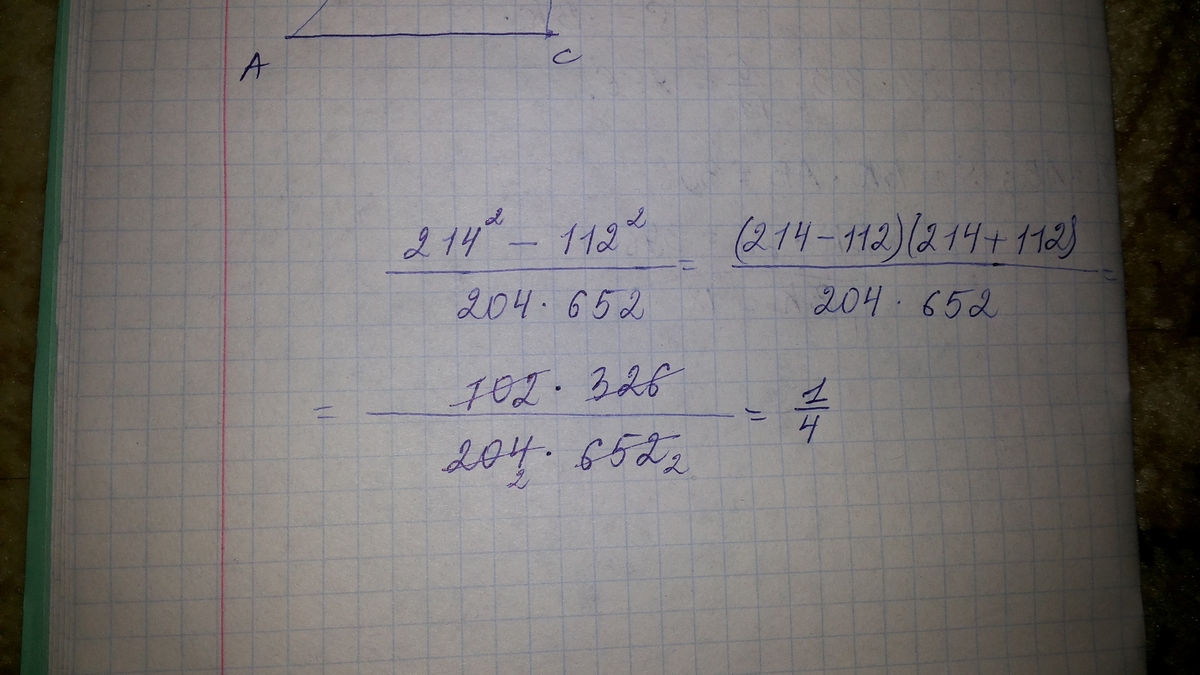 A C
214² − 112² / 204 · 652 = (214−112)(214+112) / 204 · 652 =
= 102 · 326 / 204 · 652 = 1/4
2 2